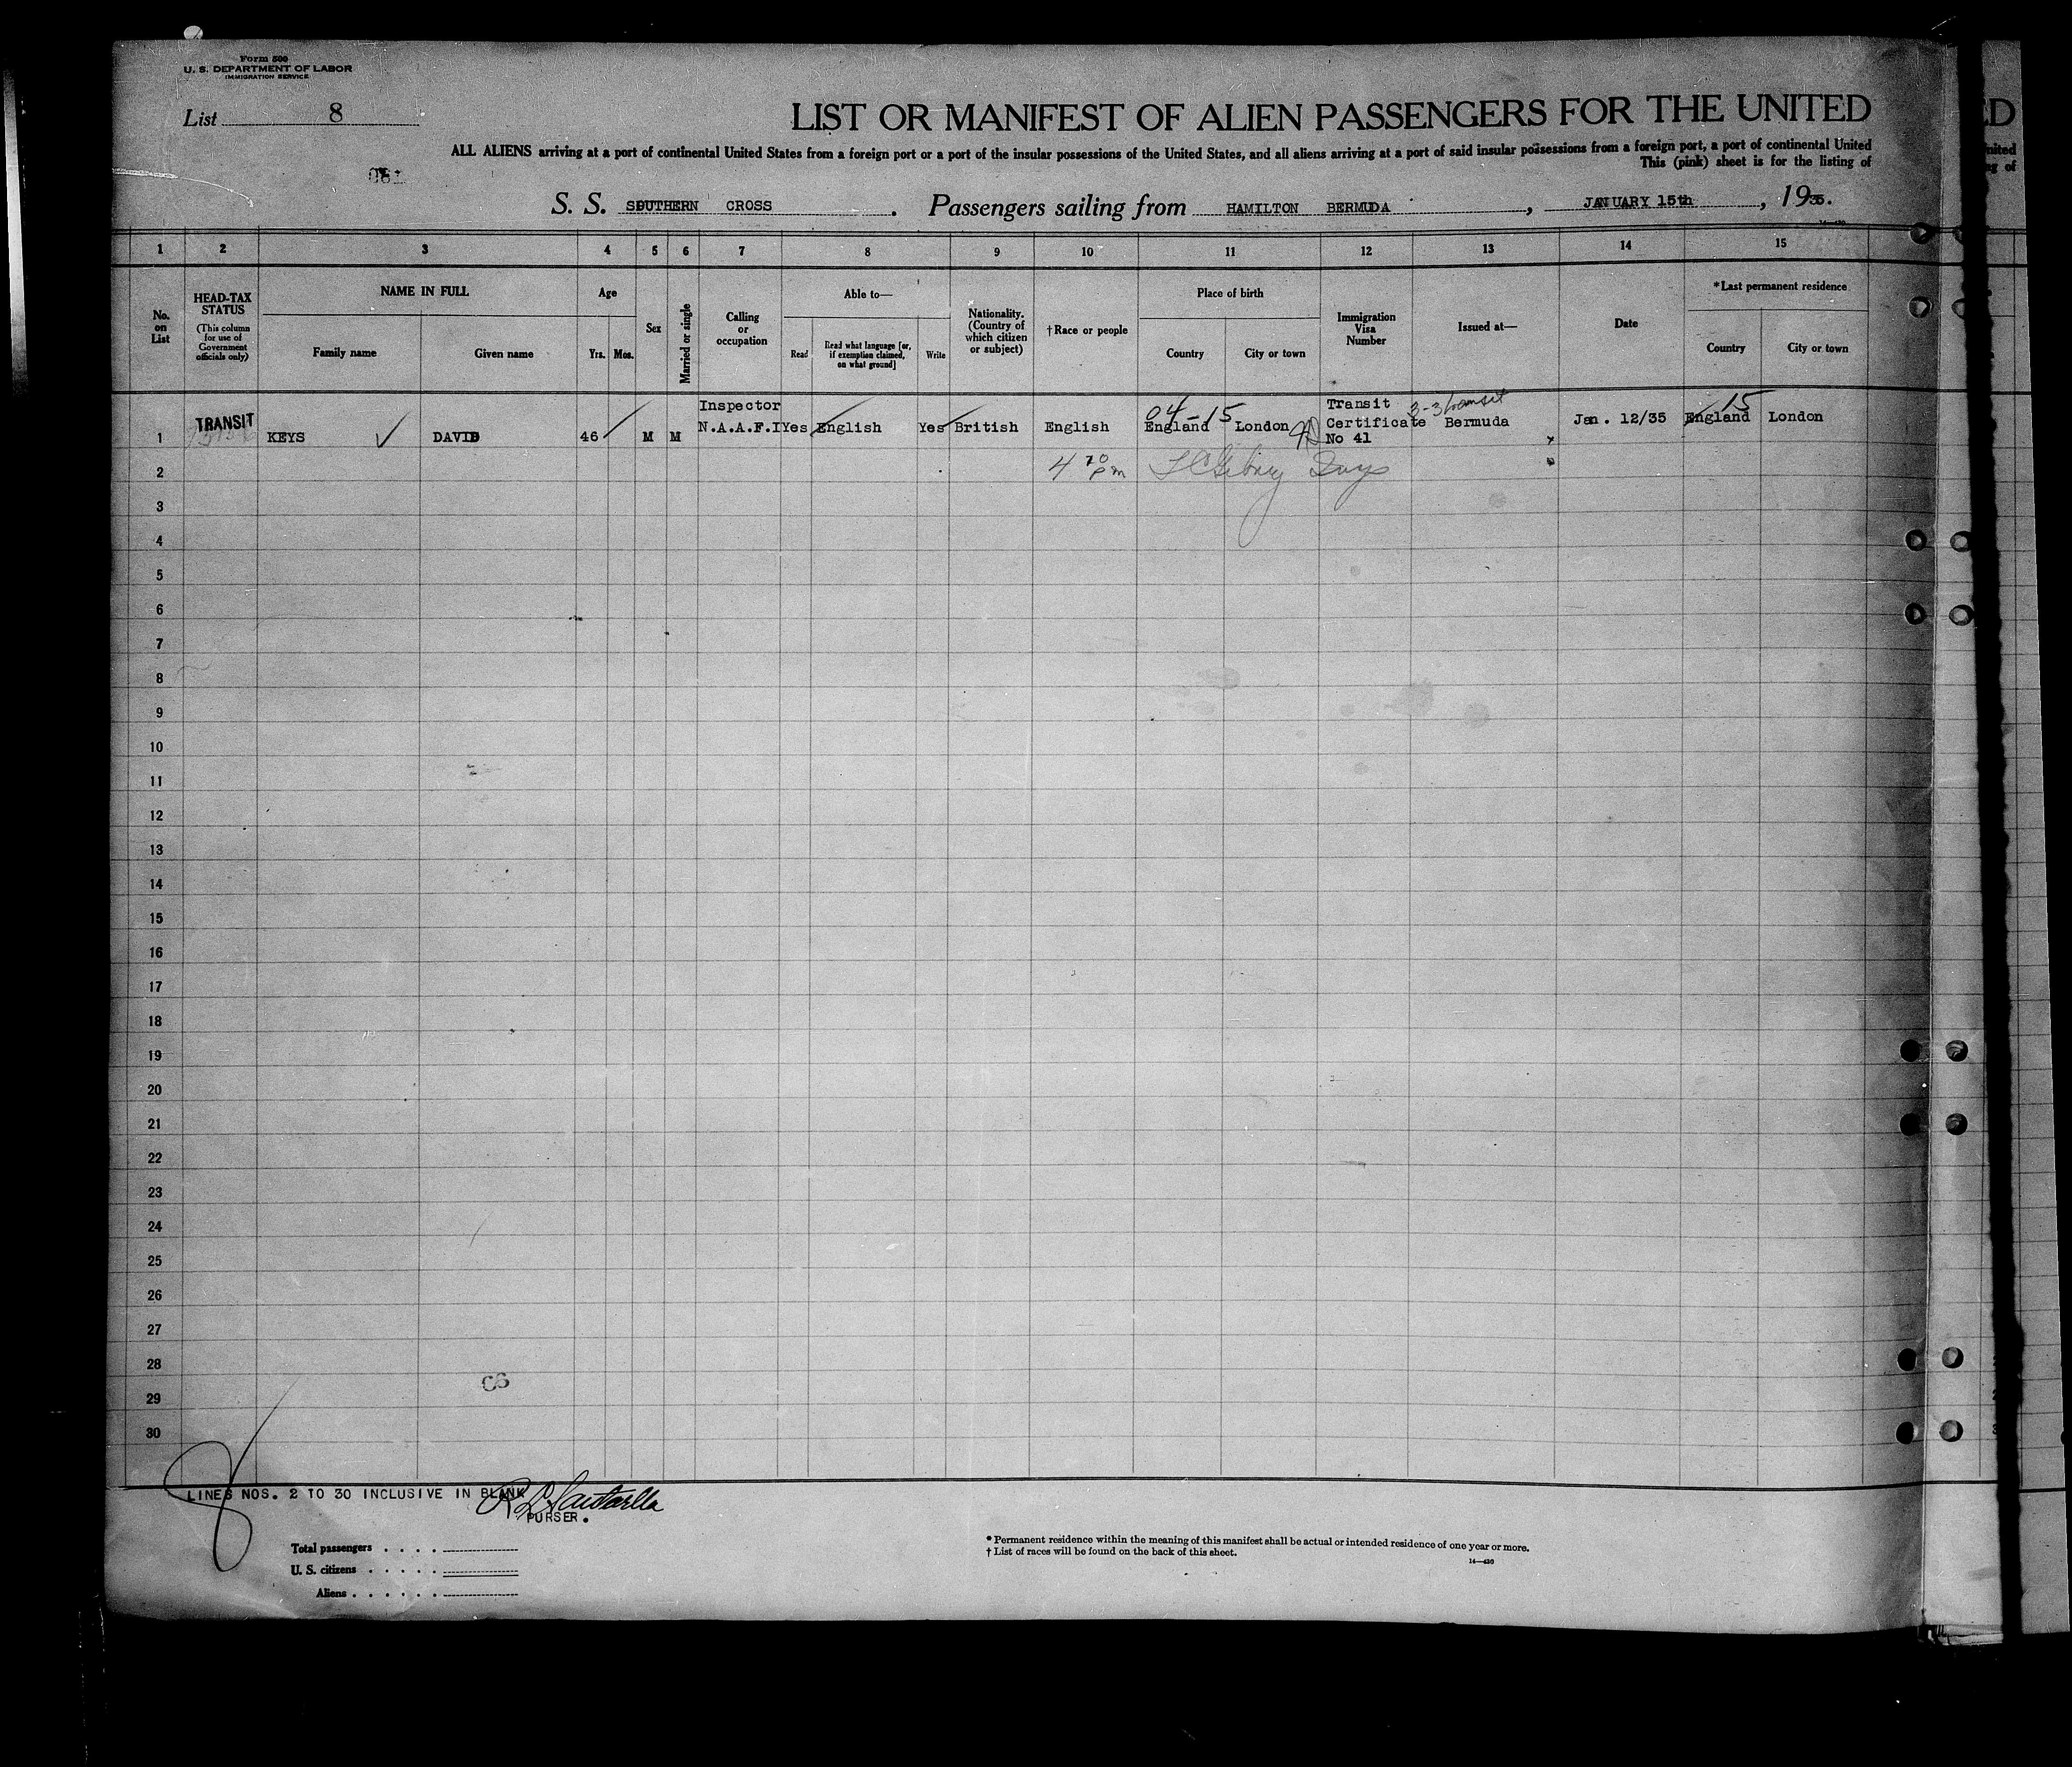 Form 500
U. S. DEPARTMENT OF LABOR
IMMIGRATION SERVICE
List 8
LIST OR MANIFEST OF ALIEN PASSENGERS FOR THE UNITED
ALL ALIENS arriving at a port of continental United States from a foreign port or a port of the insular possessions of the United States, and all aliens arriving at a port of said insular possessions from a foreign port, a port of continental United
This (pink) sheet is for the listing of
S. S. SOUTHERN CROSS . Passengers sailing from HAMILTON BERMUDA , JANUARY 15th , 1935.
1 2 3 4 5 6 7 8 9 10 11 12 13 14 15
No. on List
HEAD-TAX STATUS
(This column for use of Government officials only)
NAME IN FULL
Family name
Given name
Age
Yrs. Mos.
Sex
Married or single
Calling or occupation
Able to—
Read
Read what language [or, if exemption claimed, on what ground]
Write
Nationality. (Country of which citizen or subject)
†Race or people
Place of birth
Country
City or town
Immigration Visa Number
Issued at—
Date
*Last permanent residence
Country
City or town
1 TRANSIT KEYS ✓ DAVID 46 M M Inspector N.A.A.F.I Yes English Yes British English England 04-15 London Transit Certificate No 41 3-3 transit Bermuda Jan. 12/35 England 15 London
2 4 20 pm
3
4
5
6
7
8
9
10
11
12
13
14
15
16
17
18
19
20
21
22
23
24
25
26
27
28
29
30
LINES NOS. 2 TO 30 INCLUSIVE IN BLANK
PURSER.
Total passengers . . . .
U. S. citizens . . . . .
Aliens . . . . . .
* Permanent residence within the meaning of this manifest shall be actual or intended residence of one year or more.
† List of races will be found on the back of this sheet.
14—430